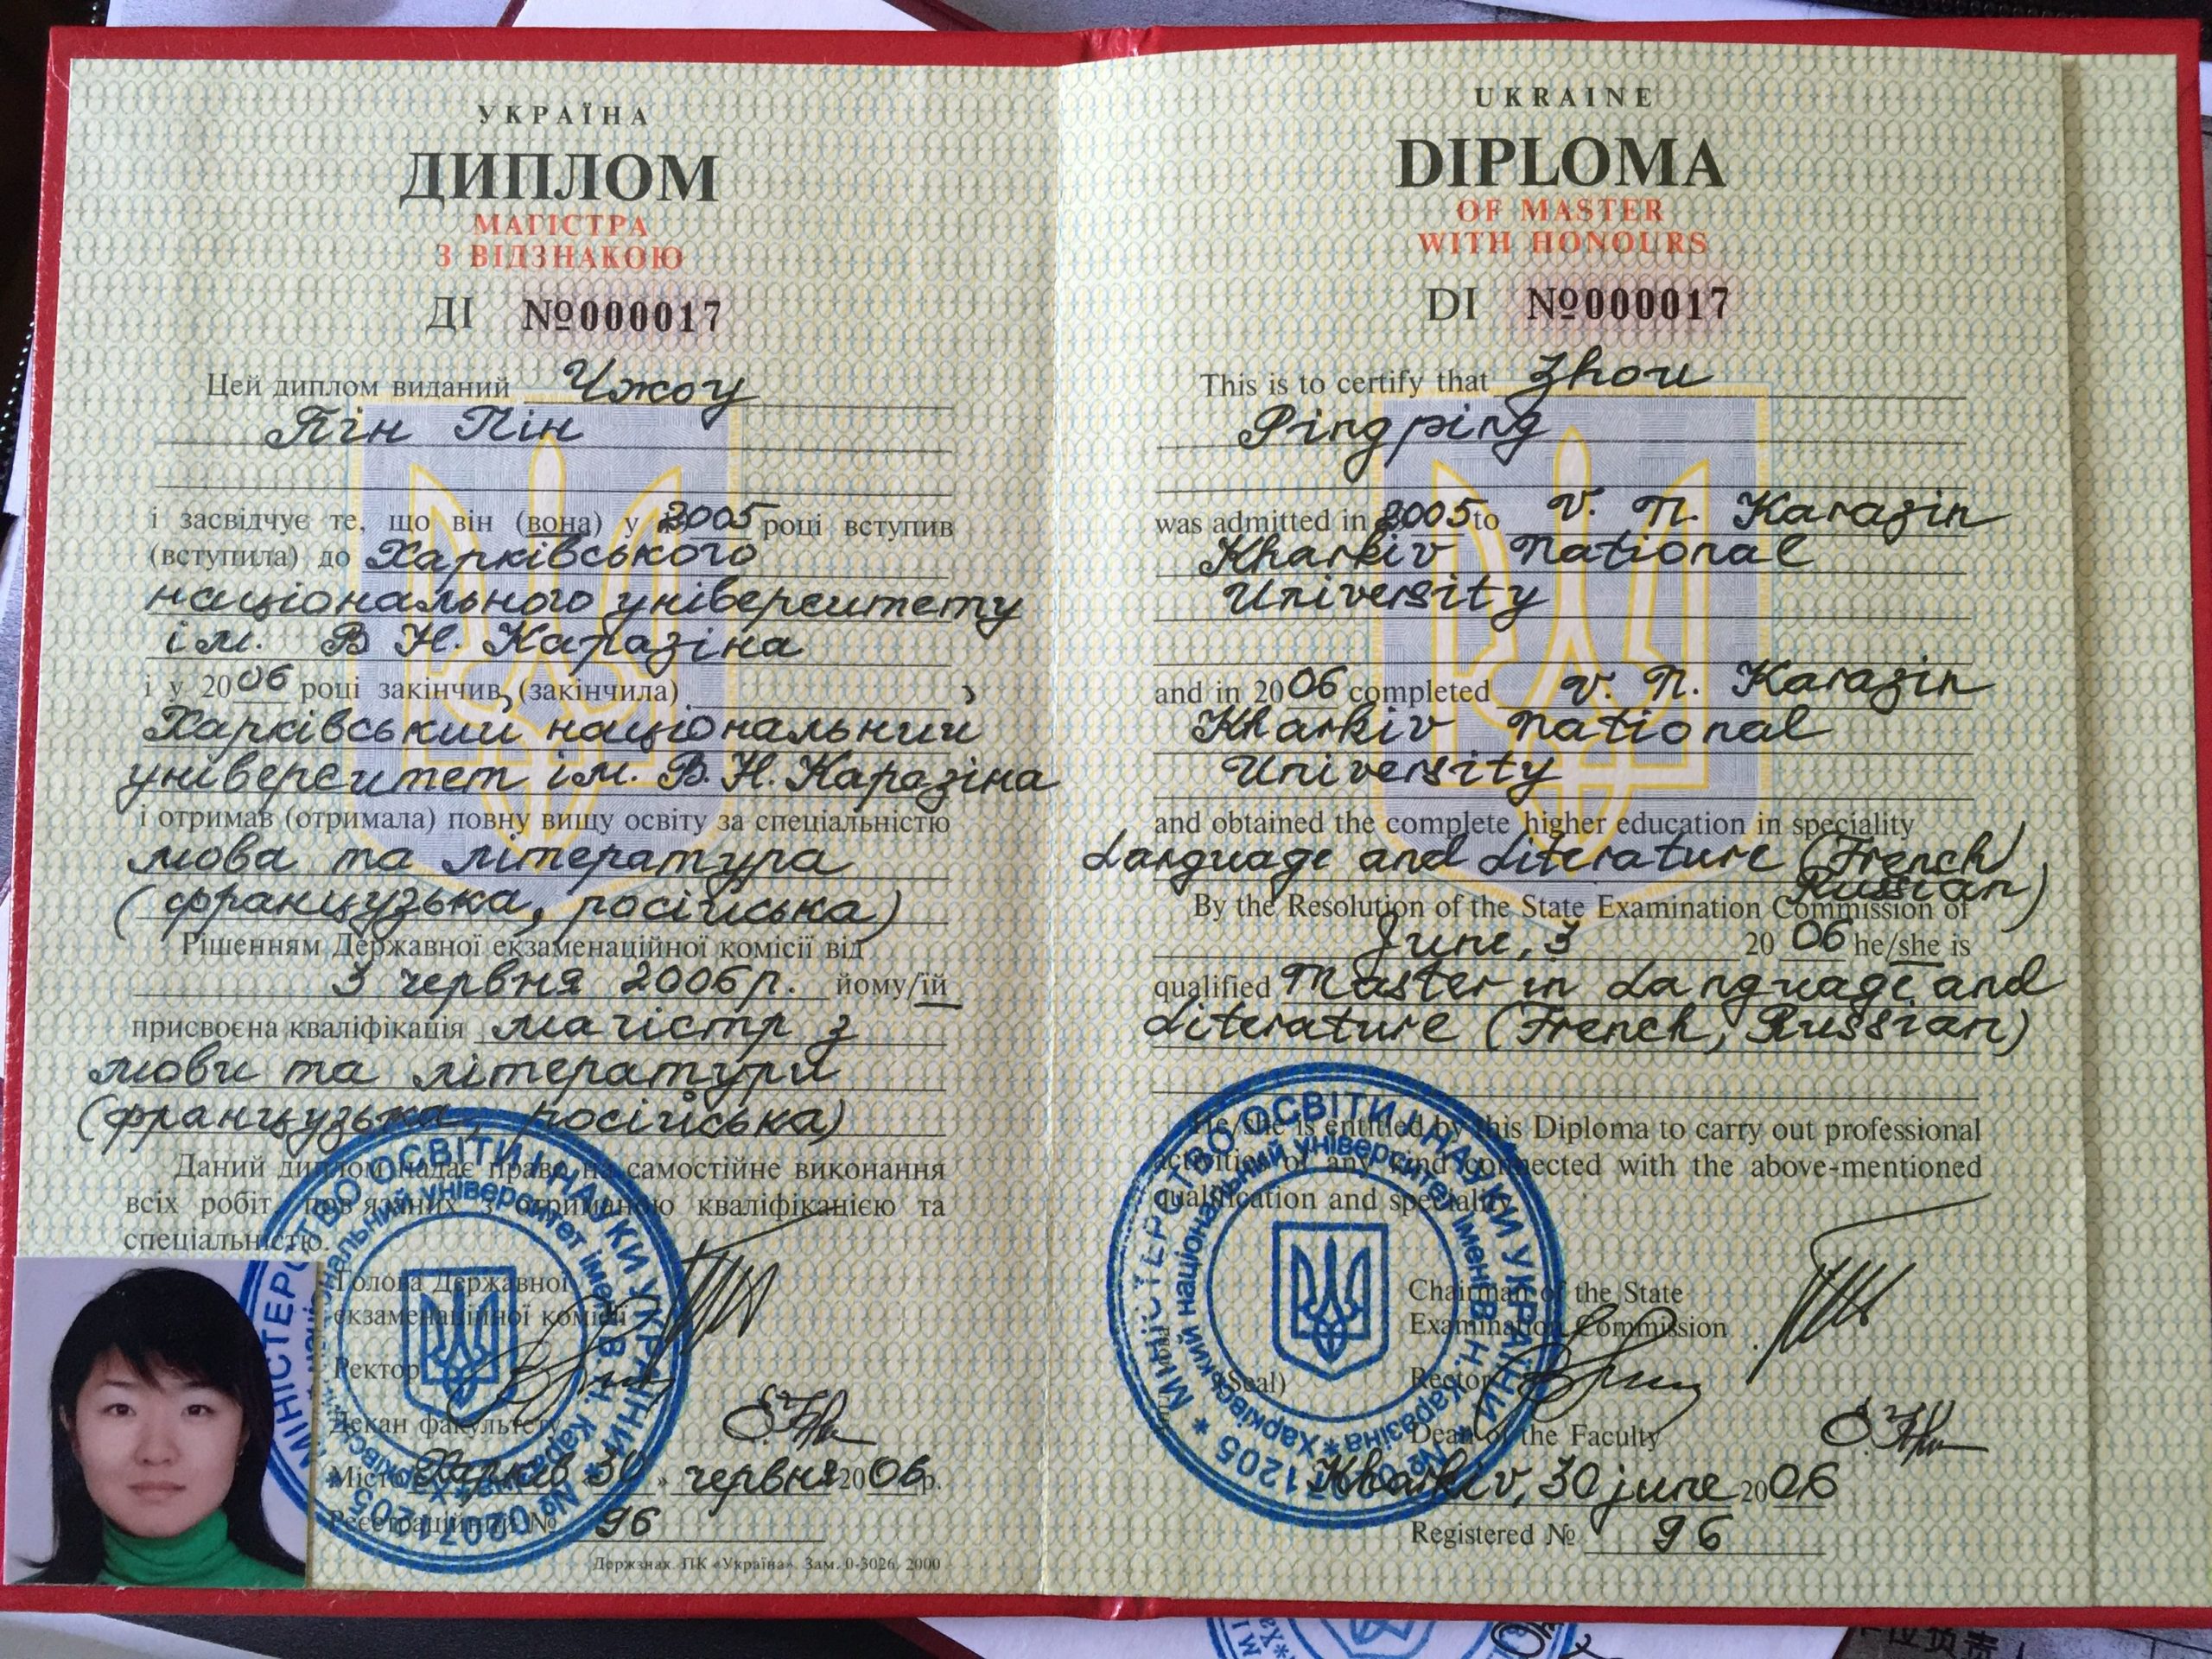 УКРАЇНА
ДИПЛОМ
МАГІСТРА
З ВІДЗНАКОЮ
ДІ №000017
Цей диплом виданий Чжоу
Пін Пін
і засвідчує те, що він (вона) у 2005 році вступив
(вступила) до Харківського
національного університету
ім. В Н. Каразіна
і у 2006 році закінчив, (закінчила) ,
Харківський національний
університет ім. В. Н. Каразіна
і отримав (отримала) повну вищу освіту за спеціальністю
мова та література
(французька, російська)
Рішенням Державної екзаменаційної комісії від
3 червня 2006 р. йому/їй
присвоєна кваліфікація магістр з
мови та літератури
(французька, російська)
Даний диплом надає право на самостійне виконання
всіх робіт, пов'язаних з отриманою кваліфікацією та
спеціальністю.
Голова Державної
екзаменаційної комісії
Ректор
Декан факультету
Місто Харків 30 » червня 2006 р.
Реєстраційний № 96
Держзнак. ПК «Україна». Зам. 0-3026. 2000
МІНІСТЕРСТВО ОСВІТИ І НАУКИ УКРАЇНИ
Харківський національний університет імені В. Н. Каразіна
UKRAINE
DIPLOMA
OF MASTER
WITH HONOURS
DI №000017
This is to certify that Zhou
Pingping
was admitted in 2005 to V. N. Karazin
Kharkiv National
University
and in 2006 completed V. N. Karazin
Kharkiv National
University
and obtained the complete higher education in speciality
Language and Literature (French,
Russian)
By the Resolution of the State Examination Commission of
June, 3 2006 he/she is
qualified Master in Language and
Literature (French, Russian)
He/she is entitled by this Diploma to carry out professional
activities of any kind connected with the above-mentioned
qualification and speciality.
Chairman of the State
Examination Commission
(Seal) Rector
Dean of the Faculty
Kharkiv, 30 june 2006
Registered № 96
* МІНІСТЕРСТВО ОСВІТИ І НАУКИ УКРАЇНИ *
Харківський національний університет імені В. Н. Каразіна *